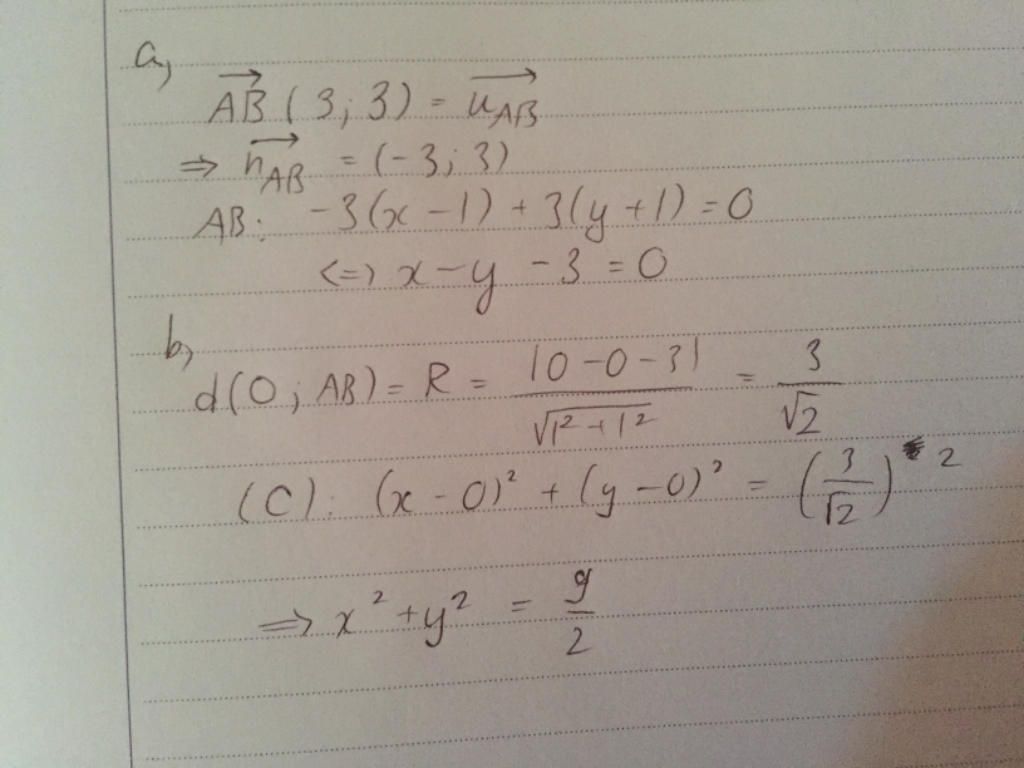 a,
AB→ (3; 3) = u→_AB
=> n→_AB = (-3; 3)
AB: -3(x - 1) + 3(y + 1) = 0
<=> x - y - 3 = 0
b,
d(O; AB) = R = |0 - 0 - 3| / √(1² + 1²) = 3/√2
(C): (x - 0)² + (y - 0)² = (3/√2)²
=> x² + y² = 9/2